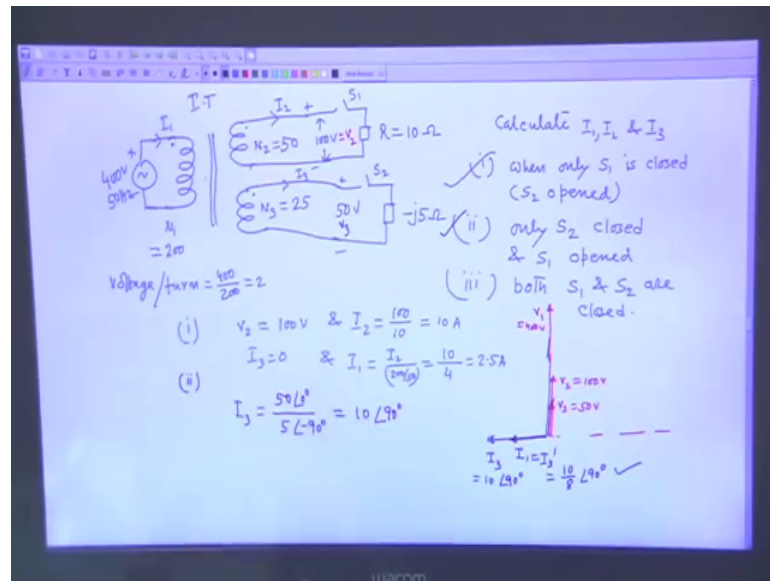 I.T
I1
400V
50Hz
N1
= 200
I2 + S1
N2=50 100V=V2 R=10Ω
-
I3 + S2
N3=25 50V -j5Ω
V3
-
Calculate I1, I2 & I3
(i) when only S1 is closed
(S2 opened)
(ii) only S2 closed
& S1 opened
(iii) both S1 & S2 are
closed.
Voltage/turn = 400/200 = 2
(i) V2 = 100V & I2 = 100/10 = 10 A
I3=0 & I1 = I2/(200/50) = 10/4 = 2.5A
(ii)
I3 = 50∠0°/5∠-90° = 10∠90°
V1
=400V
V2=100V
V3=50V
I3 I1=I3'
= 10∠90° = 10/8 ∠90°
wacom